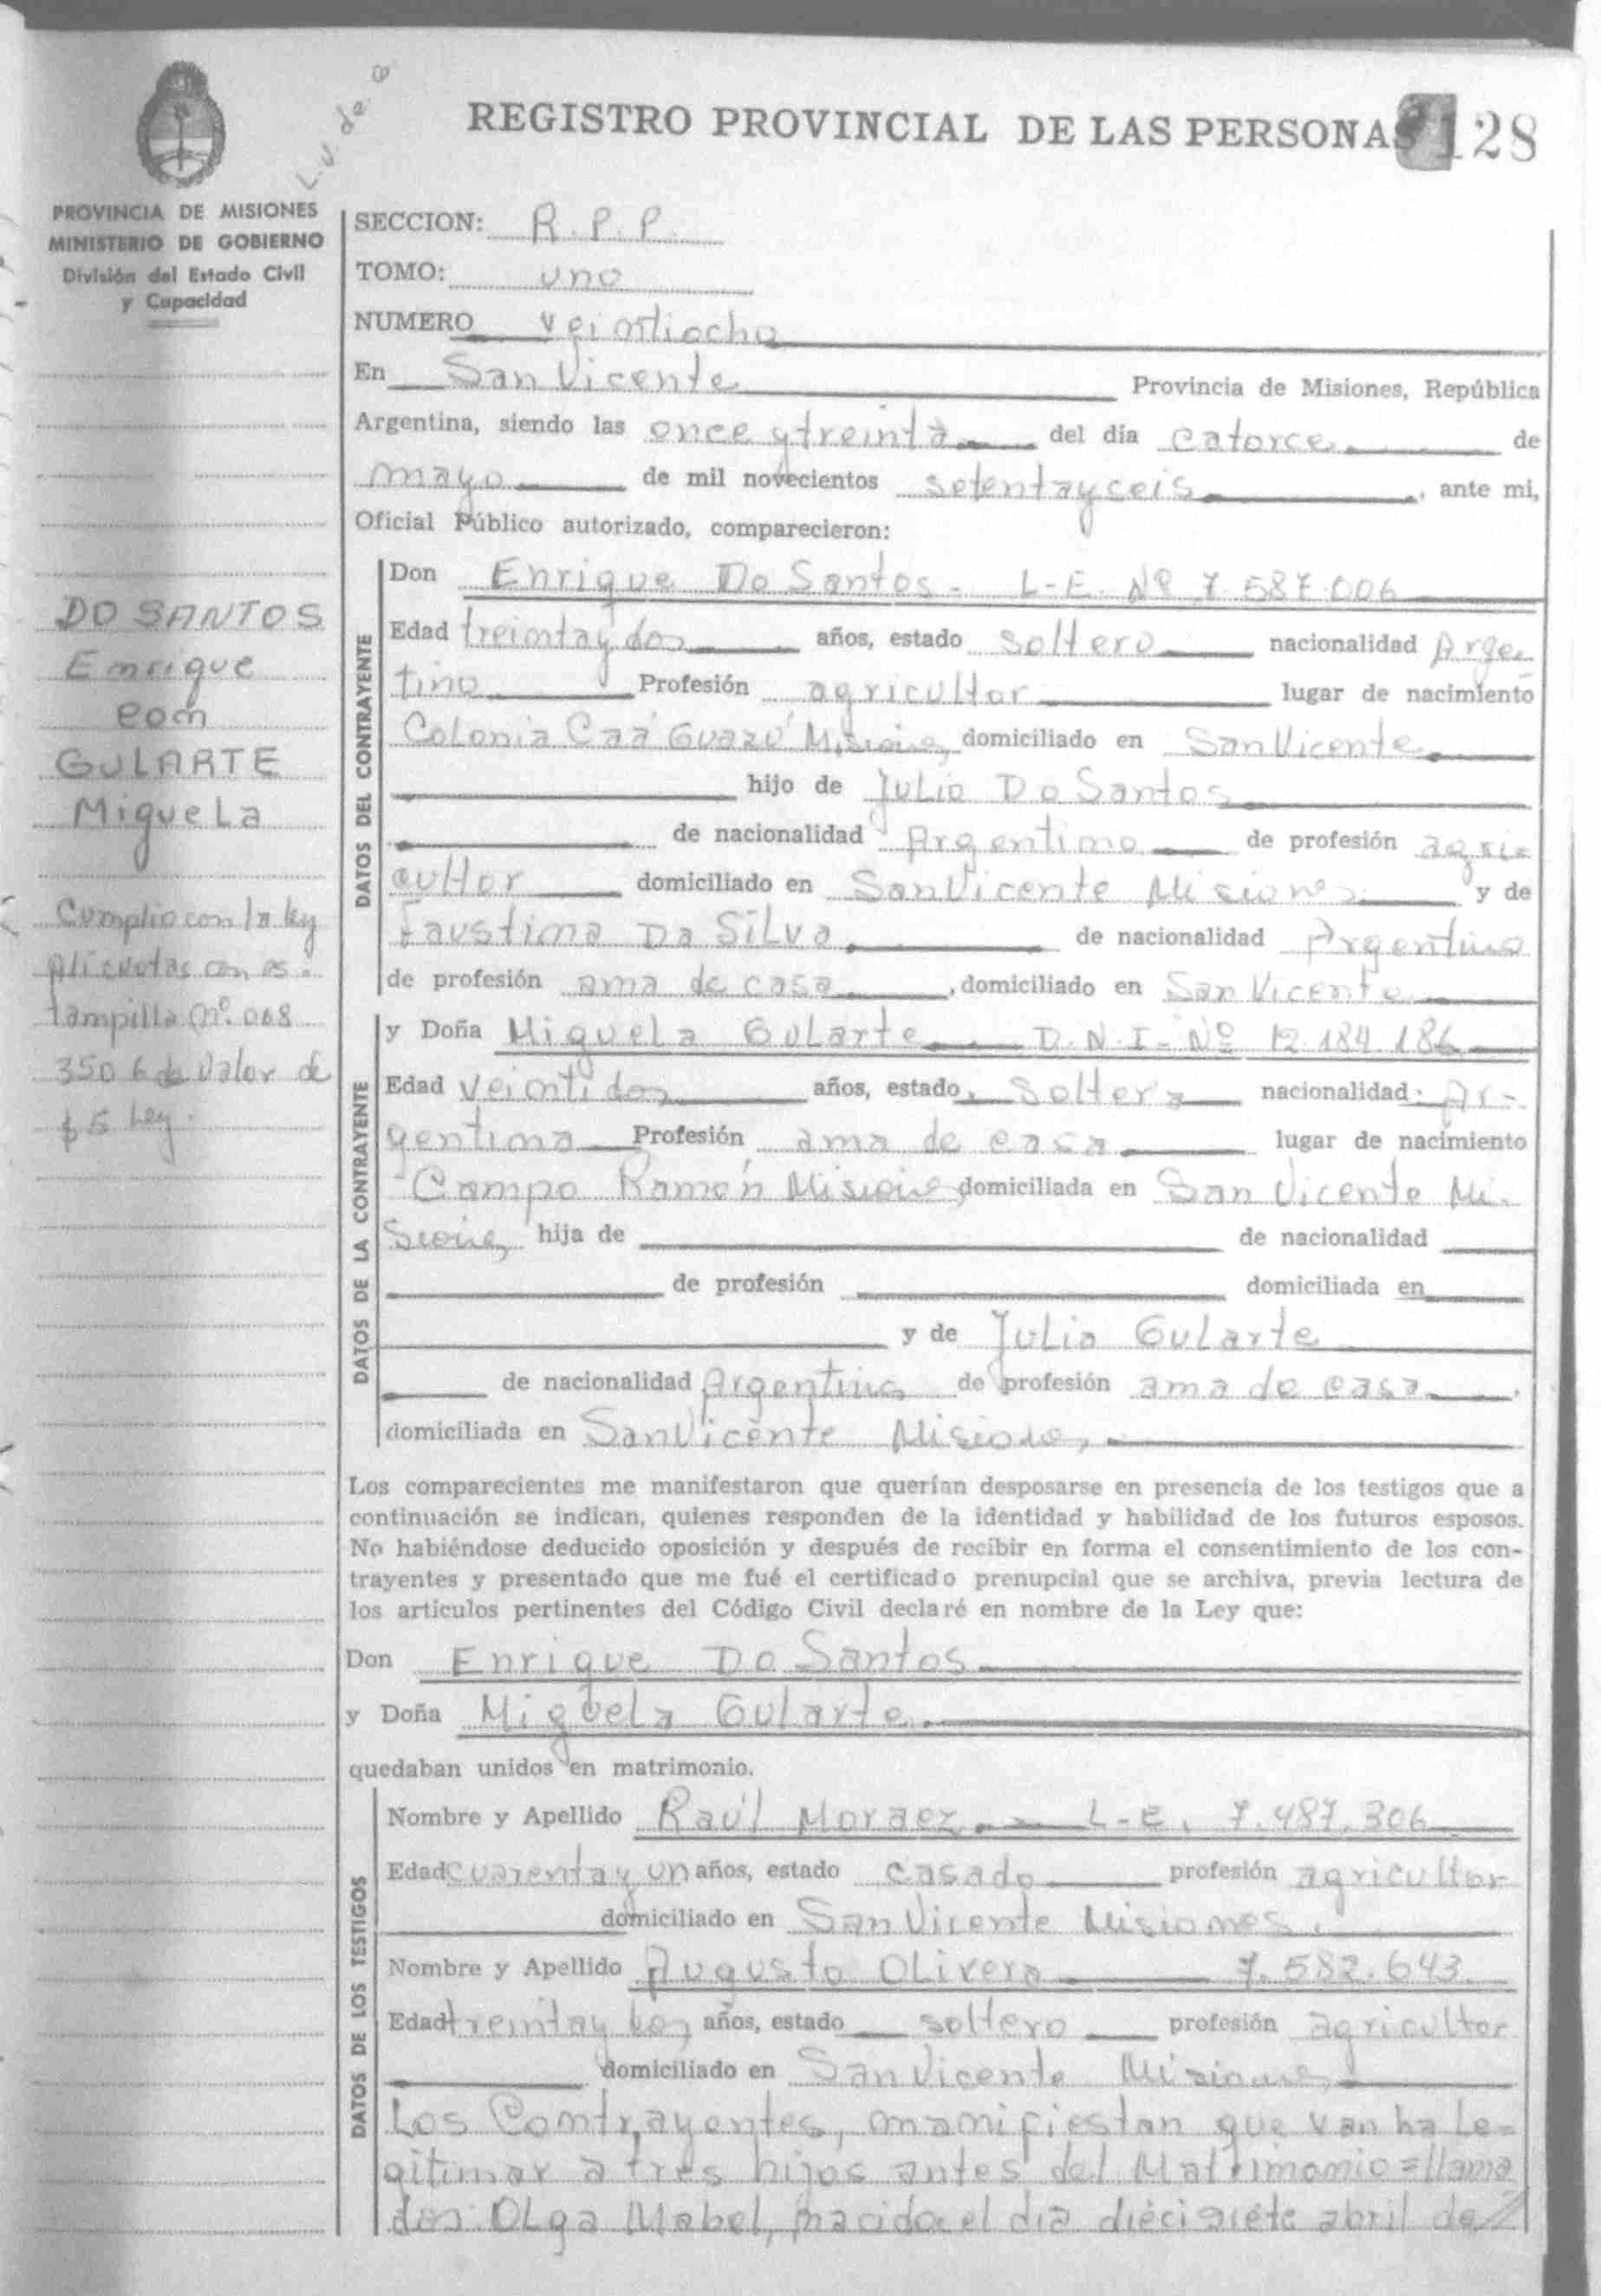 L.V. de. @
REGISTRO PROVINCIAL DE LAS PERSONAS 128
PROVINCIA DE MISIONES
MINISTERIO DE GOBIERNO
División del Estado Civil
y Capacidad
SECCION: R.P.P.
TOMO: uno
NUMERO veintiocho
En San Vicente Provincia de Misiones, República
Argentina, siendo las once y treinta del día catorce de
mayo de mil novecientos setenta y ceis, ante mi,
Oficial Público autorizado, comparecieron:
DO SANTOS
Enrique
con
GULARTE
Miguela
Cumplio con la ley
Alicuotas con es-
tampilla Nº 008
350 6 de Valor de
$ 5 Ley.
DATOS DEL CONTRAYENTE
Don Enrique Do Santos - L-E- Nº 7.587.006
Edad treinta y dos años, estado soltero nacionalidad Argen
tino Profesión agricultor lugar de nacimiento
Colonia Caá Guazú Misiones domiciliado en San Vicente
hijo de Julio Do Santos
de nacionalidad Argentino de profesión agri=
cultor domiciliado en San Vicente Misiones y de
Faustina Da Silva de nacionalidad Argentina
de profesión ama de casa, domiciliado en San Vicente
DATOS DE LA CONTRAYENTE
y Doña Miguela Gularte D.N.I- Nº 12.184.186
Edad Veintidos años, estado, Soltera nacionalidad: Ar-
gentina Profesión ama de casa lugar de nacimiento
Campo Ramón Misiones domiciliada en San Vicente Mi-
siones hija de de nacionalidad
de profesión domiciliada en
y de Julia Gularte
de nacionalidad Argentina de profesión ama de casa,
domiciliada en San Vicente Misiones
Los comparecientes me manifestaron que querían desposarse en presencia de los testigos que a
continuación se indican, quienes responden de la identidad y habilidad de los futuros esposos.
No habiéndose deducido oposición y después de recibir en forma el consentimiento de los con-
trayentes y presentado que me fué el certificado prenupcial que se archiva, previa lectura de
los artículos pertinentes del Código Civil declaré en nombre de la Ley que:
Don Enrique Do Santos
y Doña Miguela Gularte
quedaban unidos en matrimonio.
DATOS DE LOS TESTIGOS
Nombre y Apellido Raúl Moraez L-E, 7.487.306
Edad cuarenta y un años, estado casado profesión agricultor
domiciliado en San Vicente Misiones.
Nombre y Apellido Augusto Olivera 7.582.643
Edad treinta y dos años, estado soltero profesión agricultor
domiciliado en San Vicente Misiones
Los Contrayentes, manifiestan que van ha Le=
gitimar a tres hijos antes del Matrimonio=llama
dos: Olga Mabel, nacida el dia diecisiete abril de